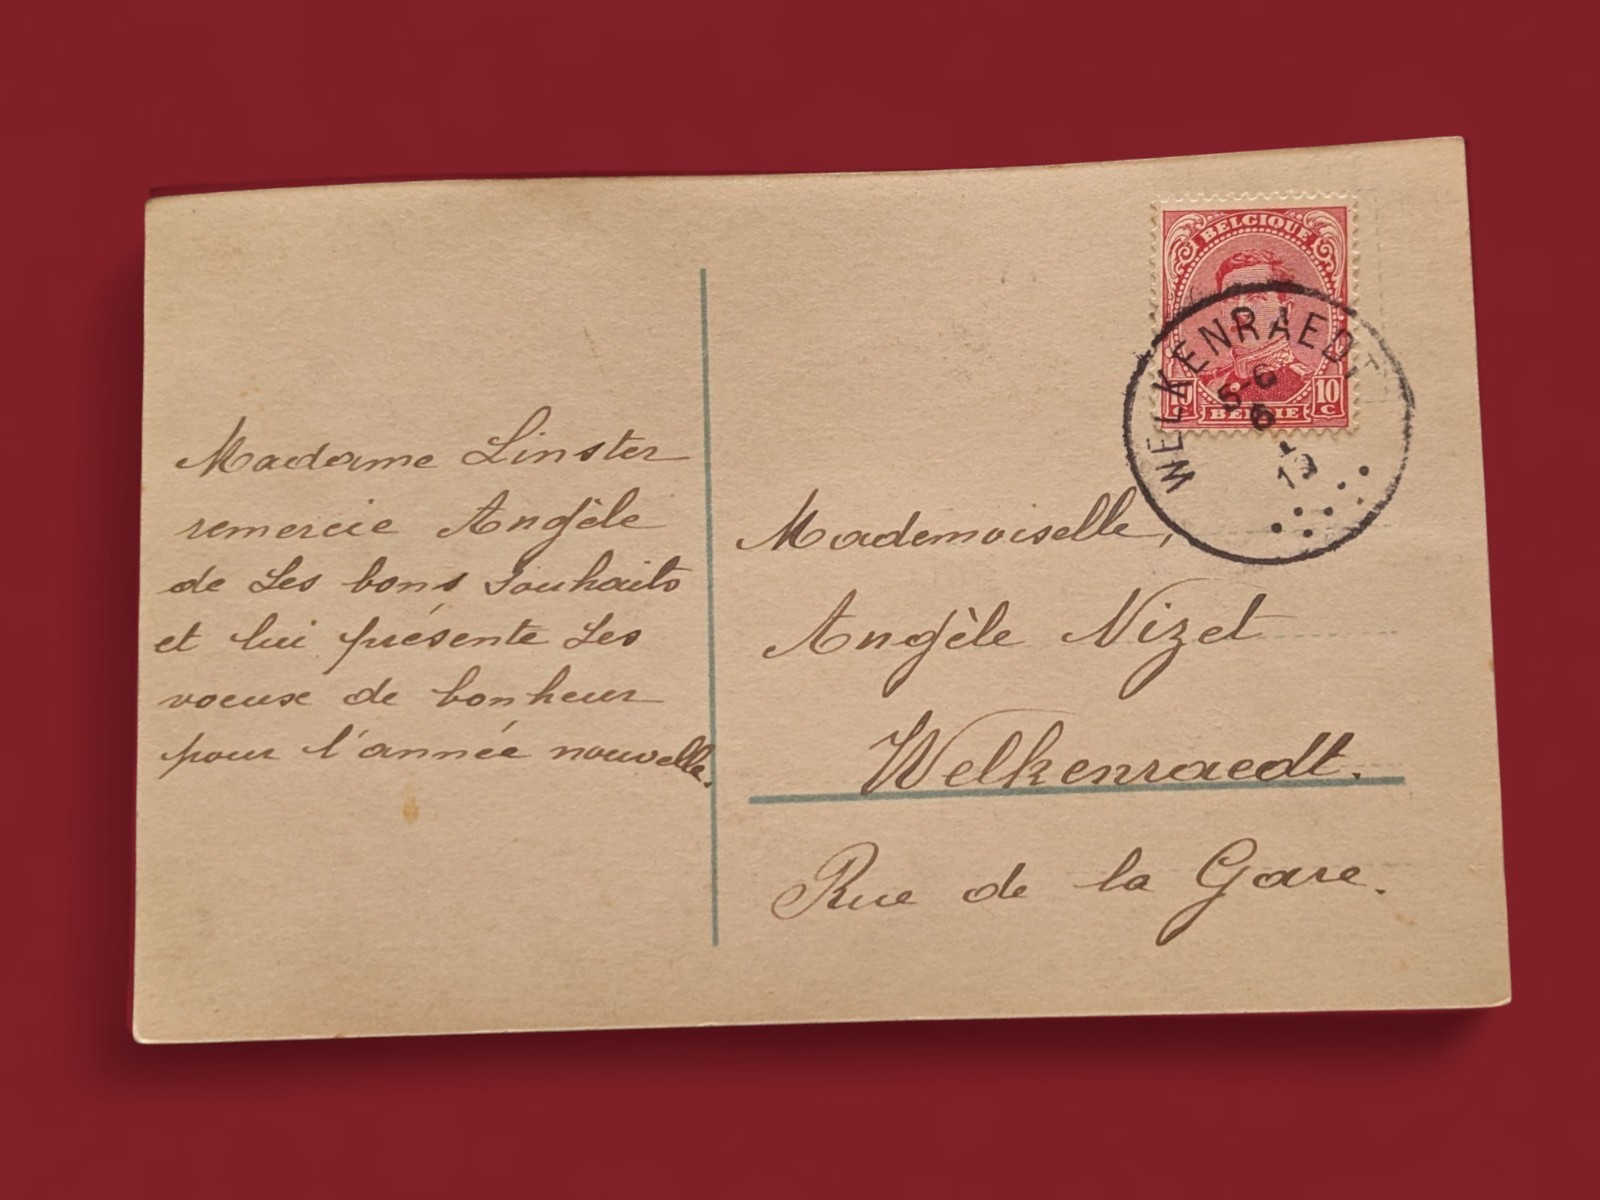 Madame Linster
remercie Angèle
de Ses bons Souhaits
et lui présente Ses
voeux de bonheur
pour l'année nouvelle.
BELGIQUE
10 C
10 C
BELGIE
WELKENRAEDT
5-6
6
1
19
Mademoiselle,
Angèle Nizet
Welkenraedt.
Rue de la Gare.